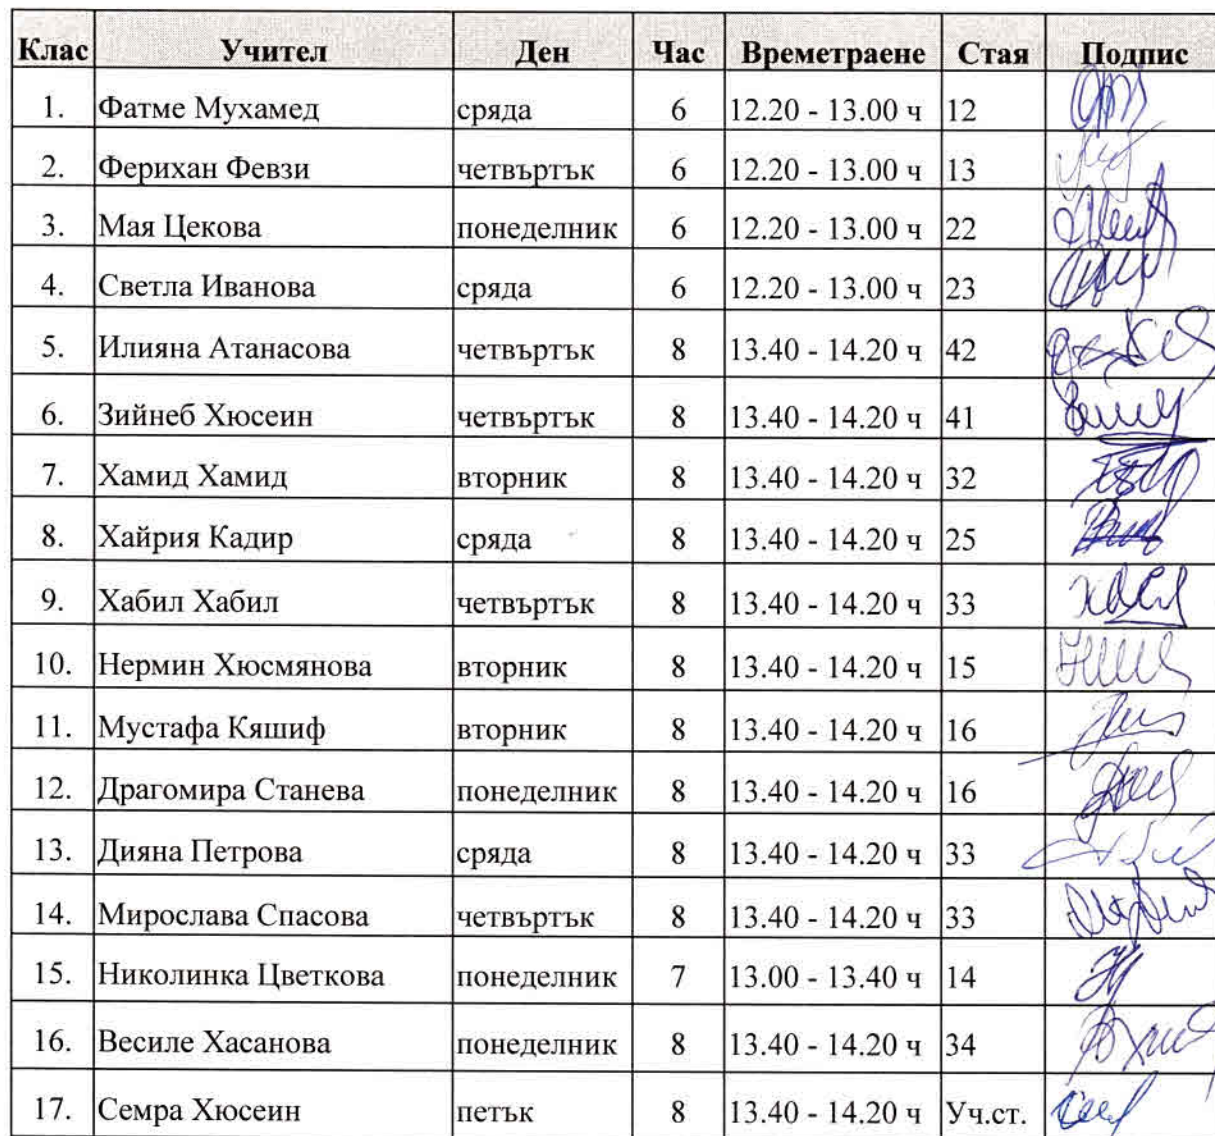 Клас Учител Ден Час Времетраене Стая Подпис
1. Фатме Мухамед сряда 6 12.20 - 13.00 ч 12
2. Ферихан Февзи четвъртък 6 12.20 - 13.00 ч 13
3. Мая Цекова понеделник 6 12.20 - 13.00 ч 22
4. Светла Иванова сряда 6 12.20 - 13.00 ч 23
5. Илияна Атанасова четвъртък 8 13.40 - 14.20 ч 42
6. Зийнеб Хюсеин четвъртък 8 13.40 - 14.20 ч 41
7. Хамид Хамид вторник 8 13.40 - 14.20 ч 32
8. Хайрия Кадир сряда 8 13.40 - 14.20 ч 25
9. Хабил Хабил четвъртък 8 13.40 - 14.20 ч 33
10. Нермин Хюсмянова вторник 8 13.40 - 14.20 ч 15
11. Мустафа Кяшиф вторник 8 13.40 - 14.20 ч 16
12. Драгомира Станева понеделник 8 13.40 - 14.20 ч 16
13. Дияна Петрова сряда 8 13.40 - 14.20 ч 33
14. Мирослава Спасова четвъртък 8 13.40 - 14.20 ч 33
15. Николинка Цветкова понеделник 7 13.00 - 13.40 ч 14
16. Весиле Хасанова понеделник 8 13.40 - 14.20 ч 34
17. Семра Хюсеин петък 8 13.40 - 14.20 ч Уч.ст.